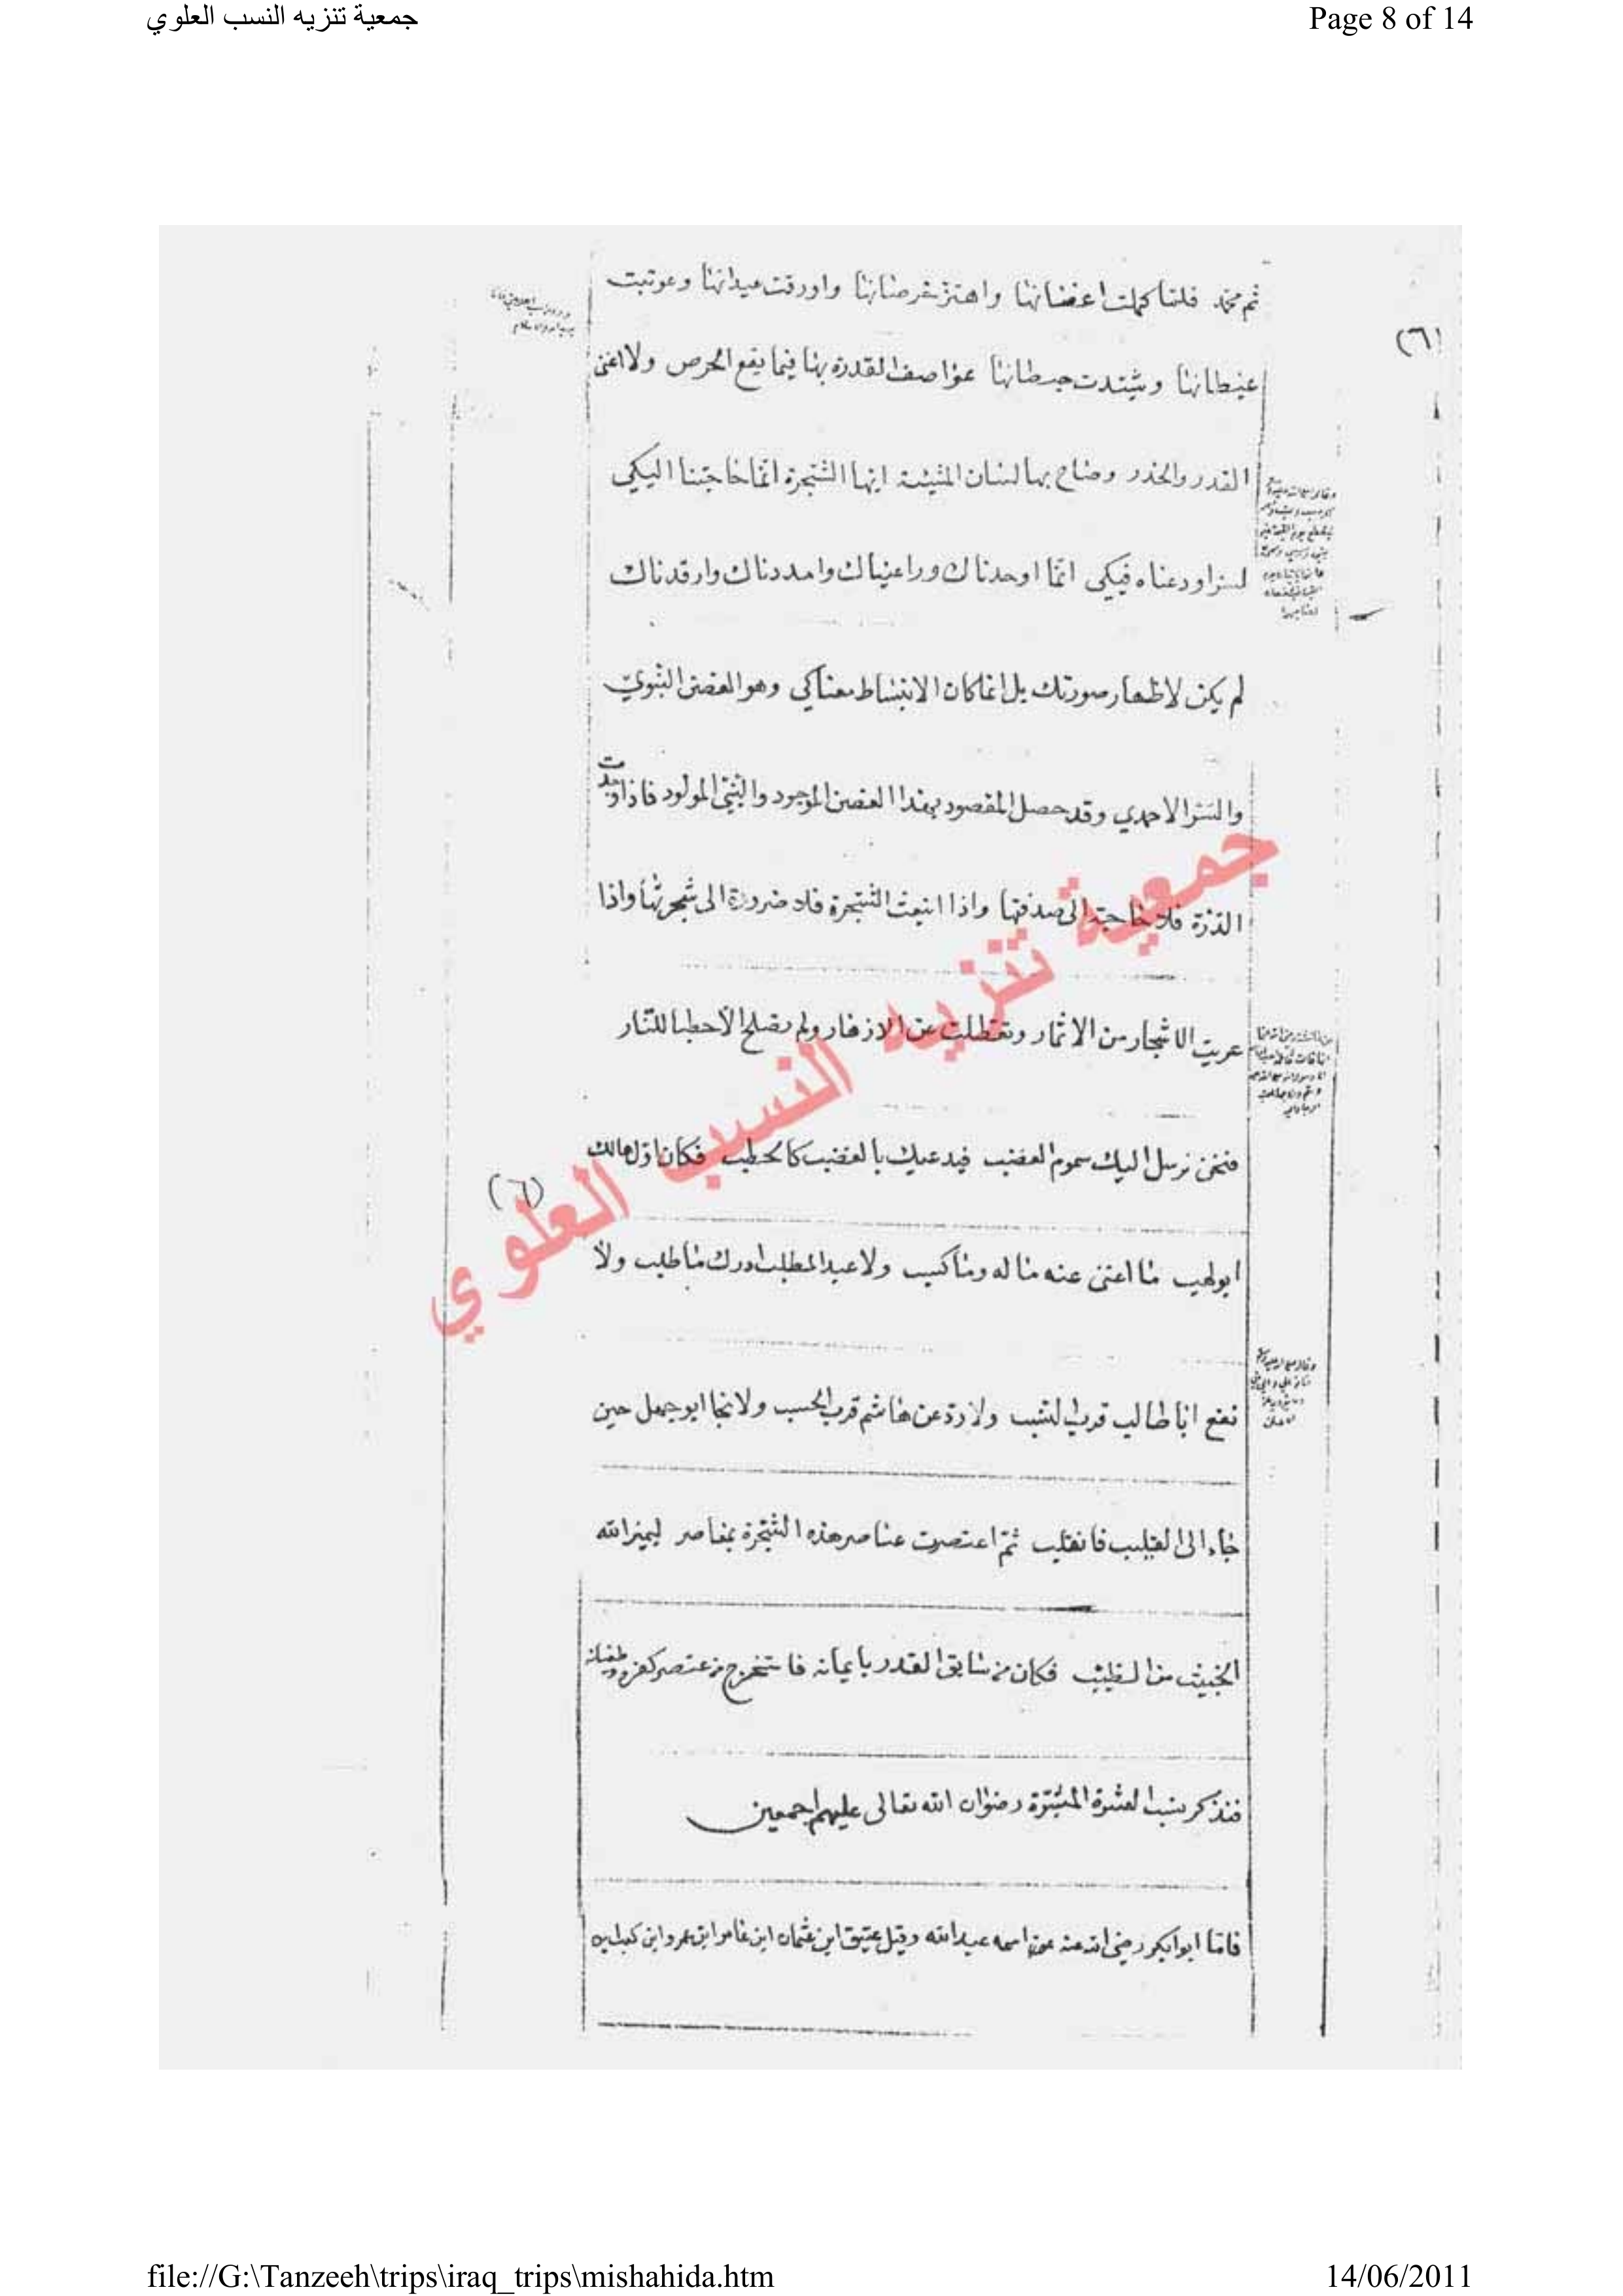 جمعية تنزيه النسب العلوي
Page 8 of 14
ثم محمد فلما كملت اغصانها واهتز واورقت عيدانها وعوتبت
غيطانها وشيّدت حيطانها عواصف القدرة بها فيما يقع الحرص ولا اغنى
القدر والحذر وصاح بها لسان المشيئة ايها الشجرة انما حاجتنا اليكي
لسرّ اودعناه فيكي انما اوجدناك وراعيناك وامددناك وارقدناك
لم يكن لاظهار صورتك بل انما كان الانبساط معناكي وهو الغصن النبوي
والسّر الاحمدي وقد حصل المقصود بهذا الغصن الموجود والنبيّ المولود فاذا وجدت
الدّرة فلا حاجة الى صدفتها واذا اينعت الشجرة فلا ضرورة الى شجرتها واذا
عريت الاشجار من الاثمار وتعطلت عن الازهار ولم يصلح الاحطبا للنّار
فنحن نرسل اليك سموم الغضب فيدعيك بالغضب كالحطب فكان اوّل هالك
ابولهب ما اغنى عنه ماله وما كسب ولا عبد المطلب ادرك ما طلب ولا
نفع ابا طالب قرب النسب ولا ردّ عن هاشم قرب الحسب ولا نجا ابو جهل حين
جاء الى القليب فانقلب ثمّ اعتصرت عناصر هذه الشجرة بمعاصر ليميز الله
الخبيث من الطيّب فكان من سابق القدر بايمانه فاستخرج من عنصر كفره وطغيانه
فنذكر نسب العشرة المبشّرة رضوان الله تعالى عليهم اجمعين
فامّا ابوابكر رضي الله عنه اسمه عبدالله وقيل عتيق ابن عثمان ابن عامر ابن عمرو ابن كعب ابن
(٦)
(٦)
جمعية تنزيه النسب العلوي
file://G:\Tanzeeh\trips\iraq_trips\mishahida.htm
14/06/2011